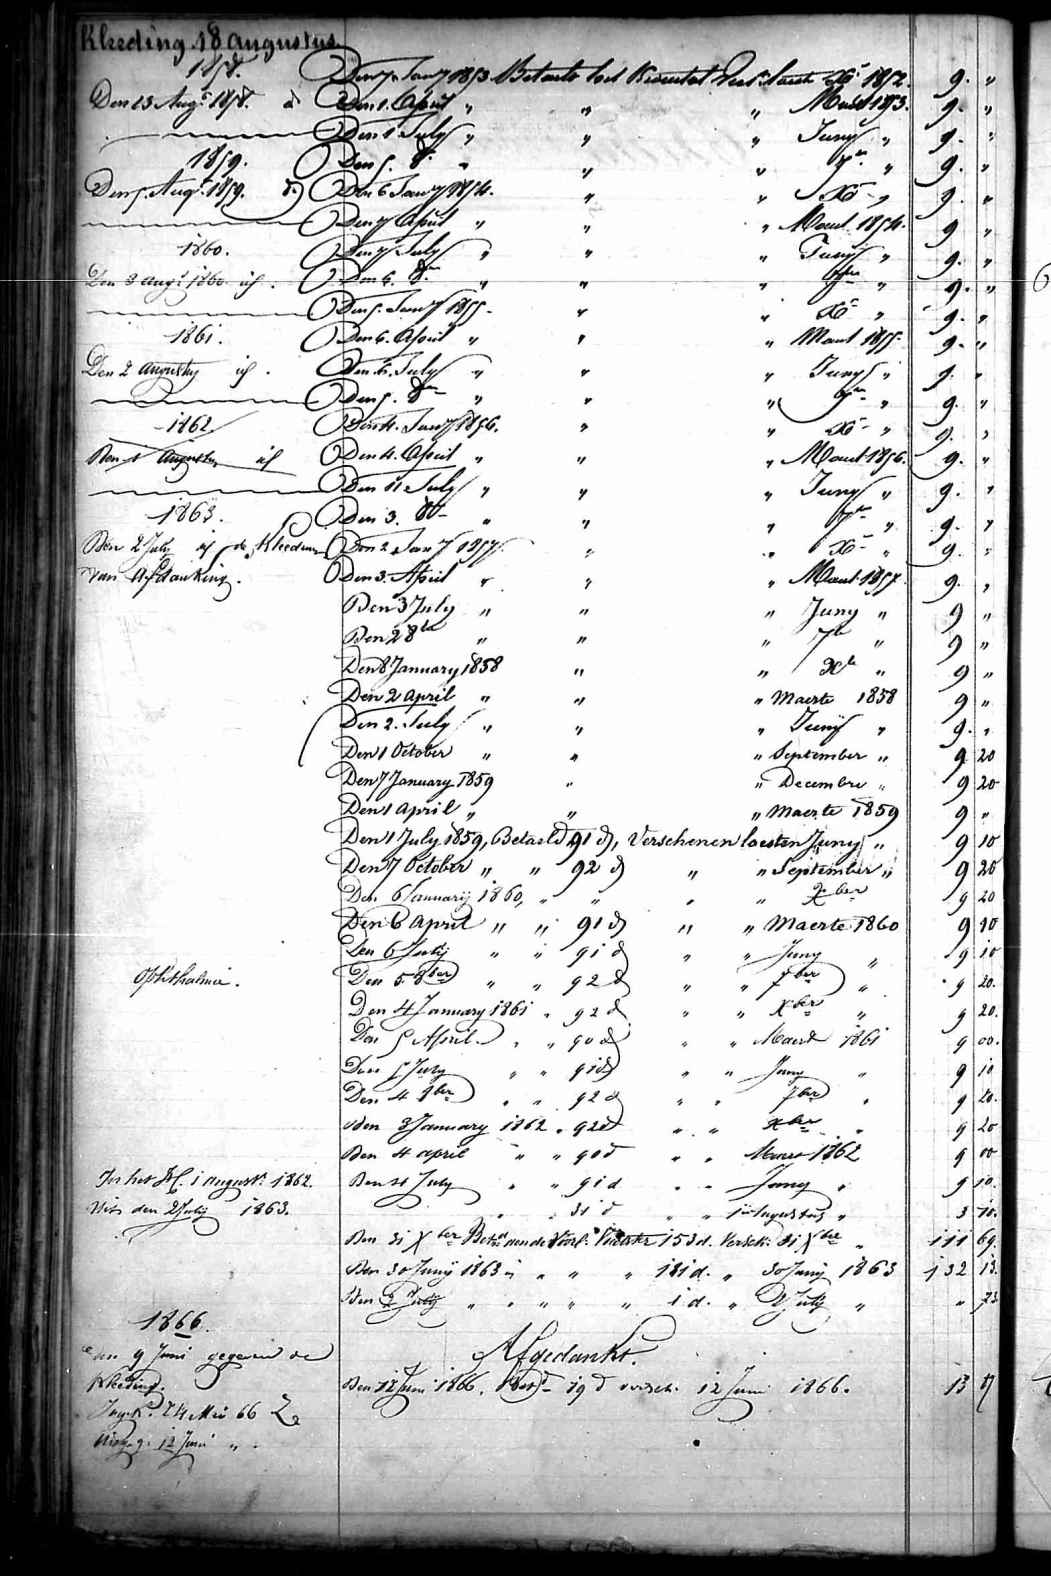 Kleeding 18 Augustus
1858.
Den 7 Jany 1853 Betaald het Kwartal X.r 1852. 9. "
Den 13 Aug.t 1858. d.o Den 1. April " " " Maert 1853. 9. "
Den 1 July " " " Juny " 9. "
1859. Den 5. 8.r " " " 7.r " 9. "
Den 5. Aug.t 1859. d.o Den 6 Jany 1854. " " X.r " 9. "
Den 7 April " " " Maert 1854. 9 "
1860. Den 7 July " " " Juny " 9. "
Den 3 Aug.t 1860 id. Den 6. 8.r " " " 7ber " 9. "
Den 5. Jany 1855. " " X.r " 9. "
1861. Den 6. April " " " Maert 1855. 9. "
Den 2 Augusty id. Den 6. July " " " Juny " 9. "
Den 5. 8.r " " " 7.r " 9. "
1862. Den 4. Jany 1856. " " X.r " 9. "
Den 1 Augustus id Den 4. April " " " Maert 1856. 9. "
Den 11 July " " " Juny " 9. "
1863. Den 3. 8.r " " " 7.r " 9. "
Den 2 July id de Kleeding Den 2 Jany 1857. " " X.r " 9. "
van Afdanking. Den 3. April " " " Maert 1857. 9. "
Den 3 July " " " Juny " 9 "
Den 2 8br " " " 7br " 9 "
Den 8 January 1858 " " Xbr " 9 "
Den 2 April " " " Maerte 1858 9 "
Den 2. July " " " Junÿ " 9. "
Den 1 October " " " September " 9 20
Den 7 January 1859 " " Decembre " 9 20
Den 1 April " " " Maerte 1859 9 "
Den 1 July 1859, Betaeld 91 d, Verschenen laesten Juny " 9 10
Den 7 October " " 92 d " " September " 9 20
Den 6 Januarij 1860, " " " " Xber 9 20
Den 6 April " " 91 d " " Maerte 1860 9 10
Den 6 July " " 91 d " " Juny " 9 10
Ophthalmie. Den 5 8ber " " 92 d " " 7ber " 9 20.
Den 4 January 1861 " 92 d " " Xber " 9 20.
Den 5 April " " 90 d " " Maert 1861 9 00.
Den 5 July " " 91 d " " Juny " 9 10
Den 4 8ber " " 92 d " " 7ber " 9 20.
Den 3 January 1862 " 92 d " " Xber " 9 20
Den 4 april " " 90 d " " Maert 1862 9 00
In het 1 augusti 1862. Den 4 July " " 91 d " " Juny " 9 10.
Uit den 2 July 1863. " " 31 d " " 1 augustus " 3 10.
Den 31 Xber Bet.d 153 d. Versch: 31 Xber " 111 69.
Den 30 Junij 1863 " " " 181 d. " 30 Junij 1863 132 13.
Den 2 July " " " " 1 d. " 2 July " " 73.
1866.
en 9 Juni gegeven de Afgedankt.
Kleeding. Den 12 Juni 1866. 19 d versch. 12 Juni 1866. 13 87
24 Mei 66
12 Juni "